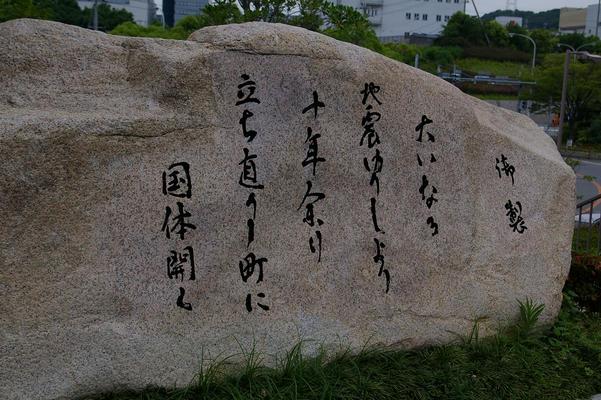 御製
大いなる
地震ゆりしより
十年余り
立ち直りし町に
国体開く